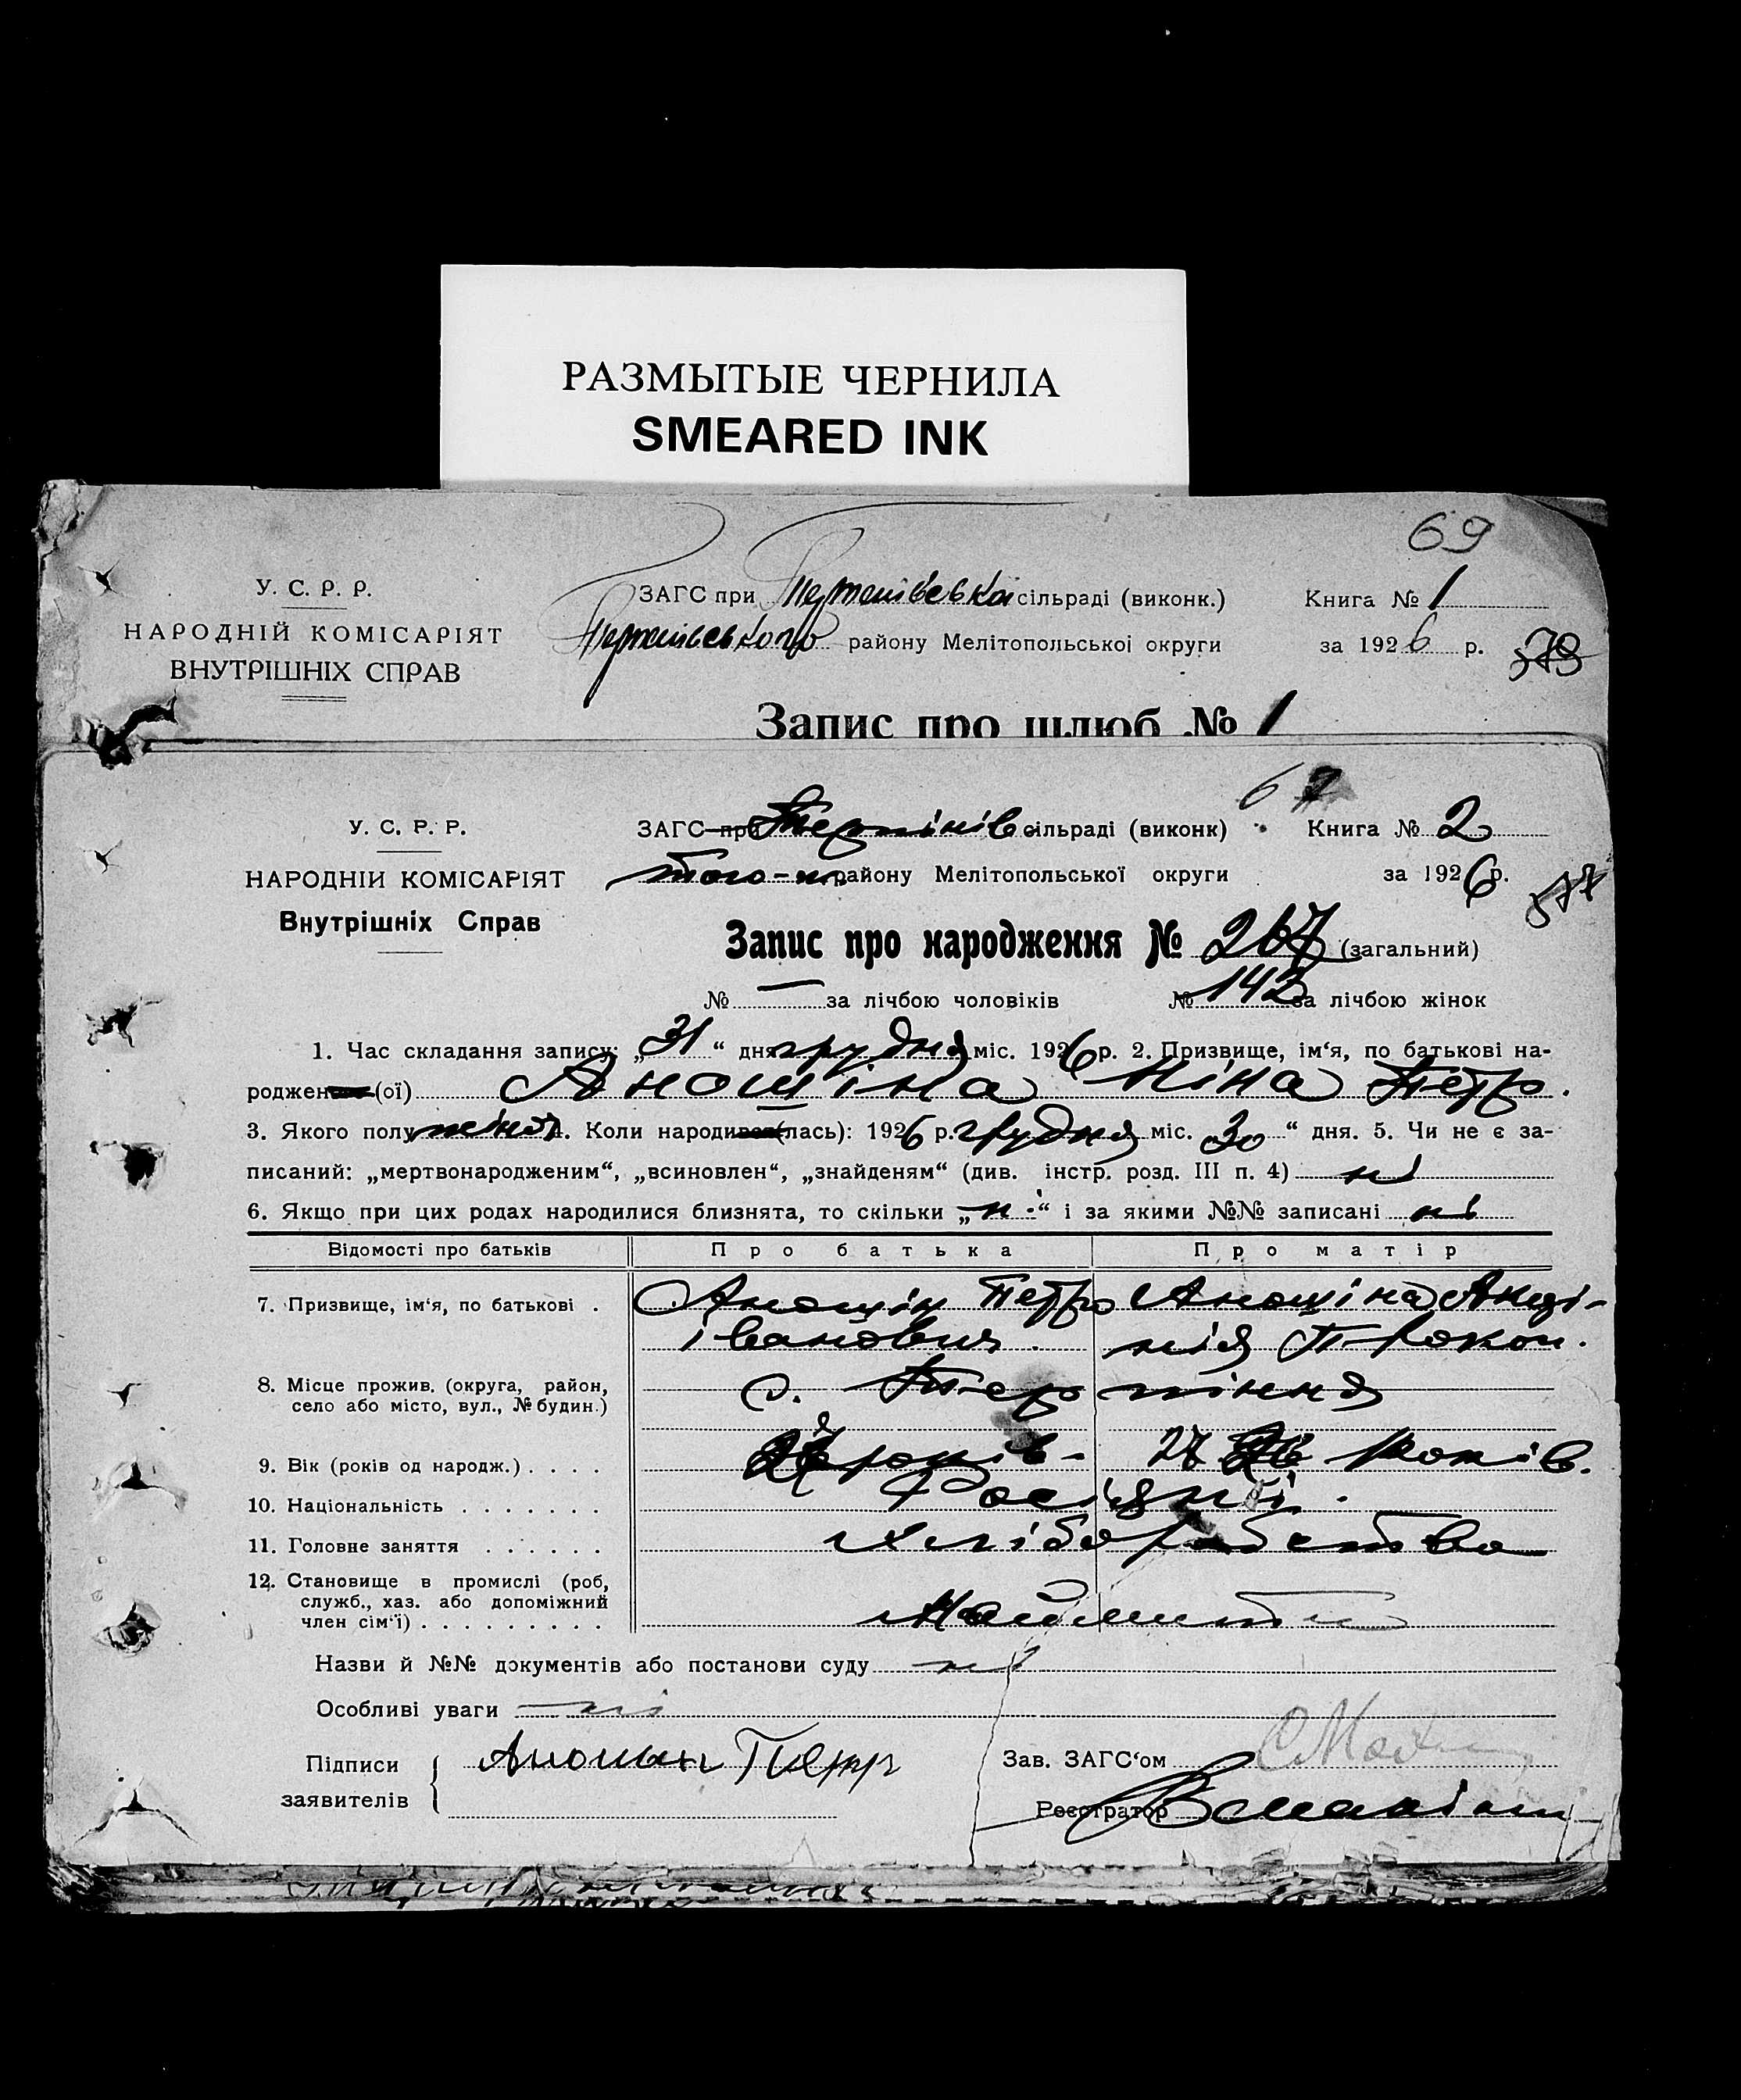 РАЗМЫТЫЕ ЧЕРНИЛА
SMEARED INK
69
У. С. Р. Р.
НАРОДНІЙ КОМІСАРІЯТ
ВНУТРІШНІХ СПРАВ
ЗАГС при сільраді (виконк.)
району Мелітопольськоі округи
Книга № 1
за 1926 р.
Запис про шлюб № 1
У. С. Р. Р.
НАРОДНІЙ КОМІСАРІЯТ
Внутрішніх Справ
ЗАГС при Терпінів сільраді (виконк)
району Мелітопольської округи
Книга № 2
за 1926 р.
Запис про народження № 267 (загальний)
№ — за лічбою чоловіків № 142 за лічбою жінок
1. Час складання запису: „31“ дня грудня міс. 1926 р. 2. Призвище, ім‘я, по батькові на-
роджен (ої) Аношіна Ніна Петр.
3. Якого полу жіноч. 4. Коли народи (лась): 1926 р. грудня міс. 30“ дня. 5. Чи не є за-
писаний: „мертвонародженим“, „всиновлен“, „знайденям“ (див. інстр. розд. III п. 4) ні
6. Якщо при цих родах народилися близнята, то скільки „ні“ і за якими №№ записані ні
Відомості про батьків Про батька Про матір
7. Призвище, ім‘я, по батькові . Аношін Петро Аношіна
Іванович нія Прокоп.
8. Місце прожив. (округа, район,
село або місто, вул., № будин.) с. Терпіння
9. Вік (років од народж.) . . . . років - 27 років.
10. Національність . . . . . . . Росіяні.
11. Головне заняття . . . . . . хліборобство
12. Становище в промислі (роб,
служб., хаз. або допоміжний
член сім‘ї) . . . . . . . . .
Назви й №№ документів або постанови суду ні
Особливі уваги ні
Підписи
заявителів
Аношин Петр
Зав. ЗАГС‘ом
Реєстратор